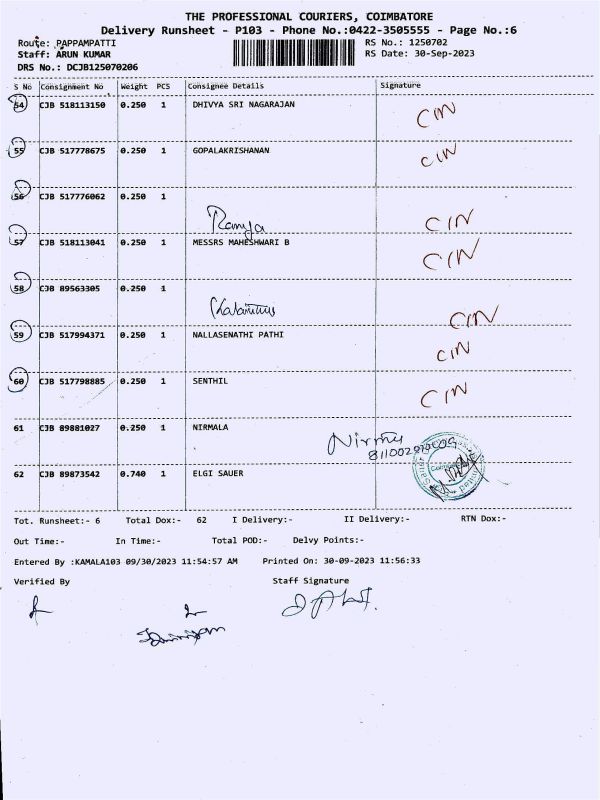 THE PROFESSIONAL COURIERS, COIMBATORE
Delivery Runsheet - P103 - Phone No.:0422-3505555 - Page No.:6
Route: PAPPAMPATTI RS No.: 1250702
Staff: ARUN KUMAR RS Date: 30-Sep-2023
DRS No.: DCJB125070206
S No Consignment No Weight PCS Consignee Details Signature
54 CJB 518113150 0.250 1 DHIVYA SRI NAGARAJAN CIN
55 CJB 517778675 0.250 1 GOPALAKRISHANAN CIN
56 CJB 517776062 0.250 1
Ramya CIN
57 CJB 518113041 0.250 1 MESSRS MAHESHWARI B CIN
58 CJB 89563305 0.250 1
CIN
59 CJB 517994371 0.250 1 NALLASENATHI PATHI CIN
60 CJB 517798885 0.250 1 SENTHIL CIN
61 CJB 89881027 0.250 1 NIRMALA
62 CJB 89873542 0.740 1 ELGI SAUER
Tot. Runsheet:- 6 Total Dox:- 62 I Delivery:- II Delivery:- RTN Dox:-
Out Time:- In Time:- Total POD:- Delvy Points:-
Entered By :KAMALA103 09/30/2023 11:54:57 AM Printed On: 30-09-2023 11:56:33
Verified By Staff Signature